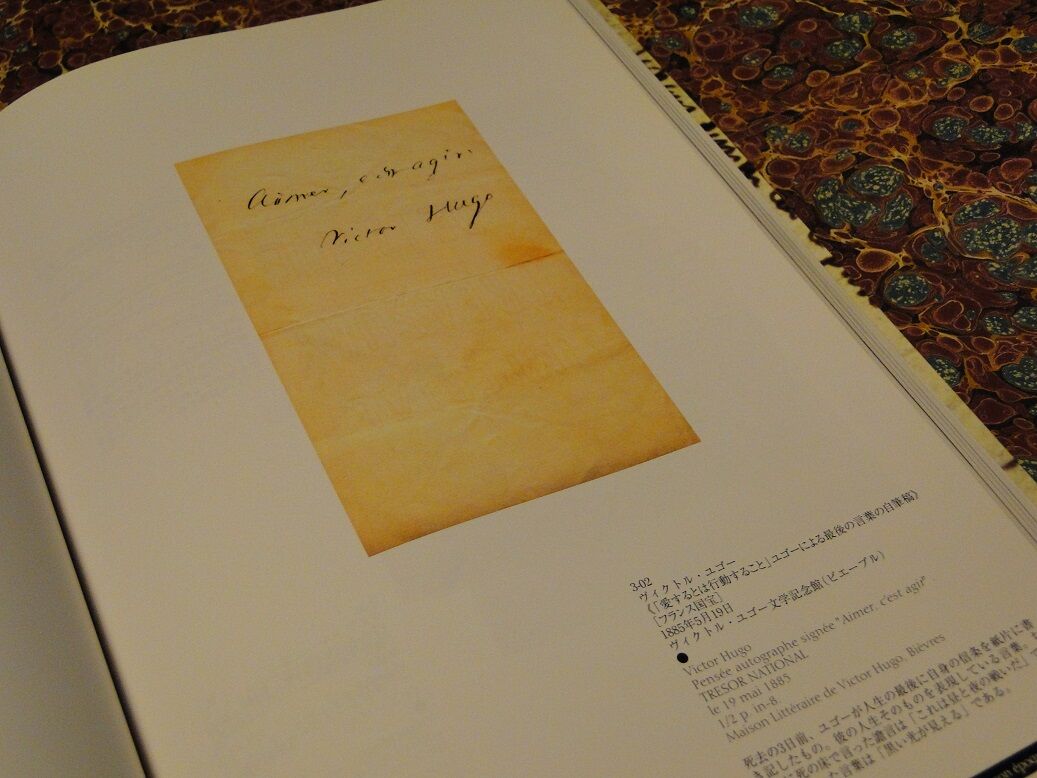 Aimer, c'est agir.
Victor Hugo
3-02
ヴィクトル・ユゴー
《「愛するとは行動すること」ユゴーによる最後の言葉の自筆稿》
[フランス国宝]
1885年5月19日
ヴィクトル・ユゴー文学記念館(ビエーブル)
●
Victor Hugo
Pensée autographe signée "Aimer, c'est agir"
TRESOR NATIONAL
le 19 mai 1885
1/2 p. in-8.
Maison Littéraire de Victor Hugo, Bièvres
死去の3日前、ユゴーが人生の最後に自身の信条を紙片に書
き記したもの。彼の人生そのものを表現している言葉。
に死の床で言った遺言は「これは昼と夜の戦いだ」
た言葉は「黒い光が見える」である。